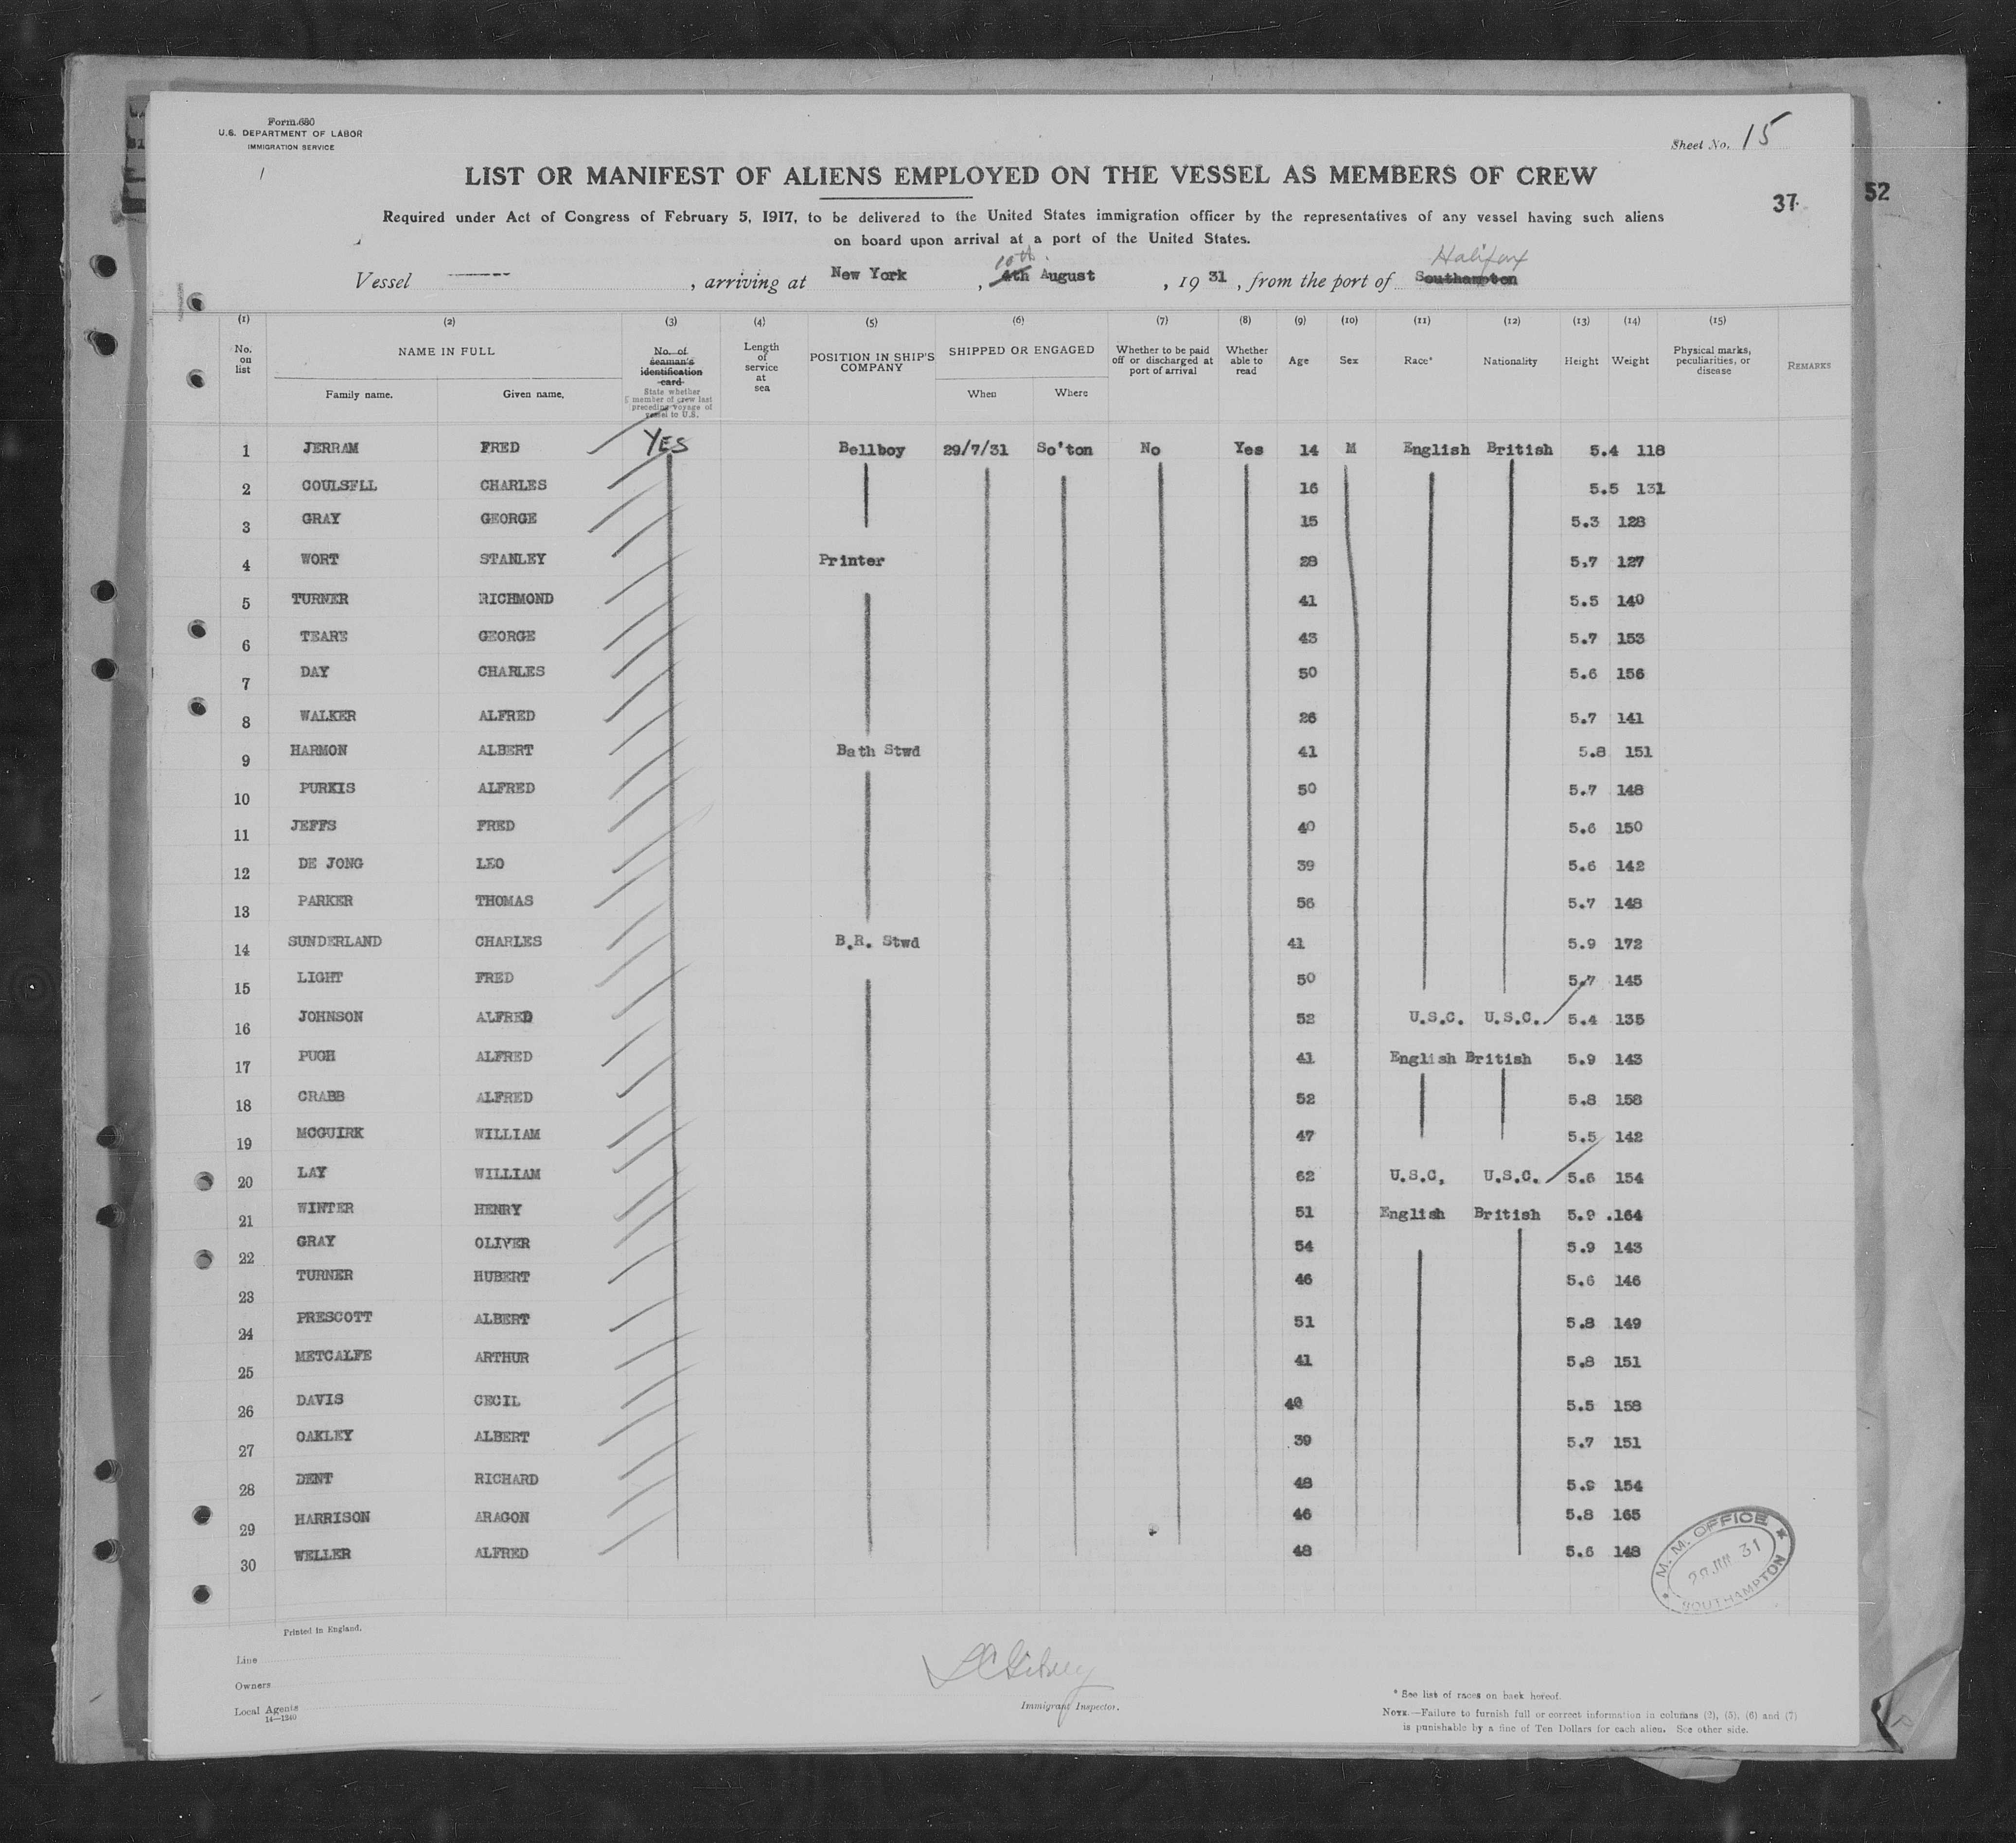 Form 680
U.S. DEPARTMENT OF LABOR
IMMIGRATION SERVICE
Sheet No. 15
LIST OR MANIFEST OF ALIENS EMPLOYED ON THE VESSEL AS MEMBERS OF CREW
37
52
Required under Act of Congress of February 5, 1917, to be delivered to the United States immigration officer by the representatives of any vessel having such aliens
on board upon arrival at a port of the United States.
10th Halifax
Vessel , arriving at New York , 4th August , 19 31 , from the port of Southampton
(1) (2) (3) (4) (5) (6) (7) (8) (9) (10) (11) (12) (13) (14) (15)
No. on list NAME IN FULL No. of seaman's identification card Length of service at sea POSITION IN SHIP'S COMPANY SHIPPED OR ENGAGED Whether to be paid off or discharged at port of arrival Whether able to read Age Sex Race* Nationality Height Weight Physical marks, peculiarities, or disease REMARKS
Family name. Given name. State whether member of crew last preceding voyage of vessel to U.S. When Where
1 JERRAM FRED YES Bellboy 29/7/31 So'ton No Yes 14 M English British 5.4 118
2 COULSELL CHARLES 16 5.5 131
3 GRAY GEORGE 15 5.3 128
4 WORT STANLEY Printer 28 5.7 127
5 TURNER RICHMOND 41 5.5 140
6 TEARE GEORGE 43 5.7 153
7 DAY CHARLES 50 5.6 156
8 WALKER ALFRED 26 5.7 141
9 HARMON ALBERT Bath Stwd 41 5.8 151
10 PURKIS ALFRED 50 5.7 148
11 JEFFS FRED 40 5.6 150
12 DE JONG LEO 39 5.6 142
13 PARKER THOMAS 56 5.7 148
14 SUNDERLAND CHARLES B.R. Stwd 41 5.9 172
15 LIGHT FRED 50 5.7 145
16 JOHNSON ALFRED 52 U.S.C. U.S.C. 5.4 135
17 PUGH ALFRED 41 English British 5.9 143
18 CRABB ALFRED 52 5.8 158
19 MCGUIRK WILLIAM 47 5.5 142
20 LAY WILLIAM 62 U.S.C, U.S.C. 5.6 154
21 WINTER HENRY 51 English British 5.9 .164
22 GRAY OLIVER 54 5.9 143
23 TURNER HUBERT 46 5.6 146
24 PRESCOTT ALBERT 51 5.8 149
25 METCALFE ARTHUR 41 5.8 151
26 DAVIS CECIL 40 5.5 158
27 OAKLEY ALBERT 39 5.7 151
28 DENT RICHARD 48 5.9 154
29 HARRISON ARAGON 46 5.8 165
30 WELLER ALFRED 48 5.6 148
M. M. OFFICE
31
SOUTHAMPTON
Printed in England.
Line
Owners
Local Agents
14—1240
Immigrant Inspector.
* See list of races on back hereof.
NOTE.—Failure to furnish full or correct information in columns (2), (5), (6) and (7)
is punishable by a fine of Ten Dollars for each alien. See other side.